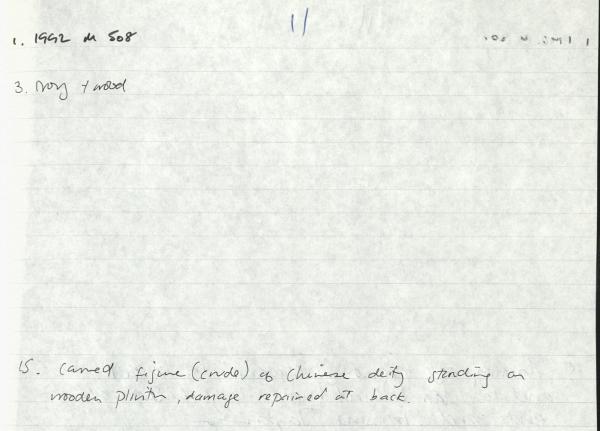 11
1. 1992 M 508
3. Ivory + wood
15. Carved figure (crude) of Chinese deity standing on
wooden plinth, damage repaired at back.